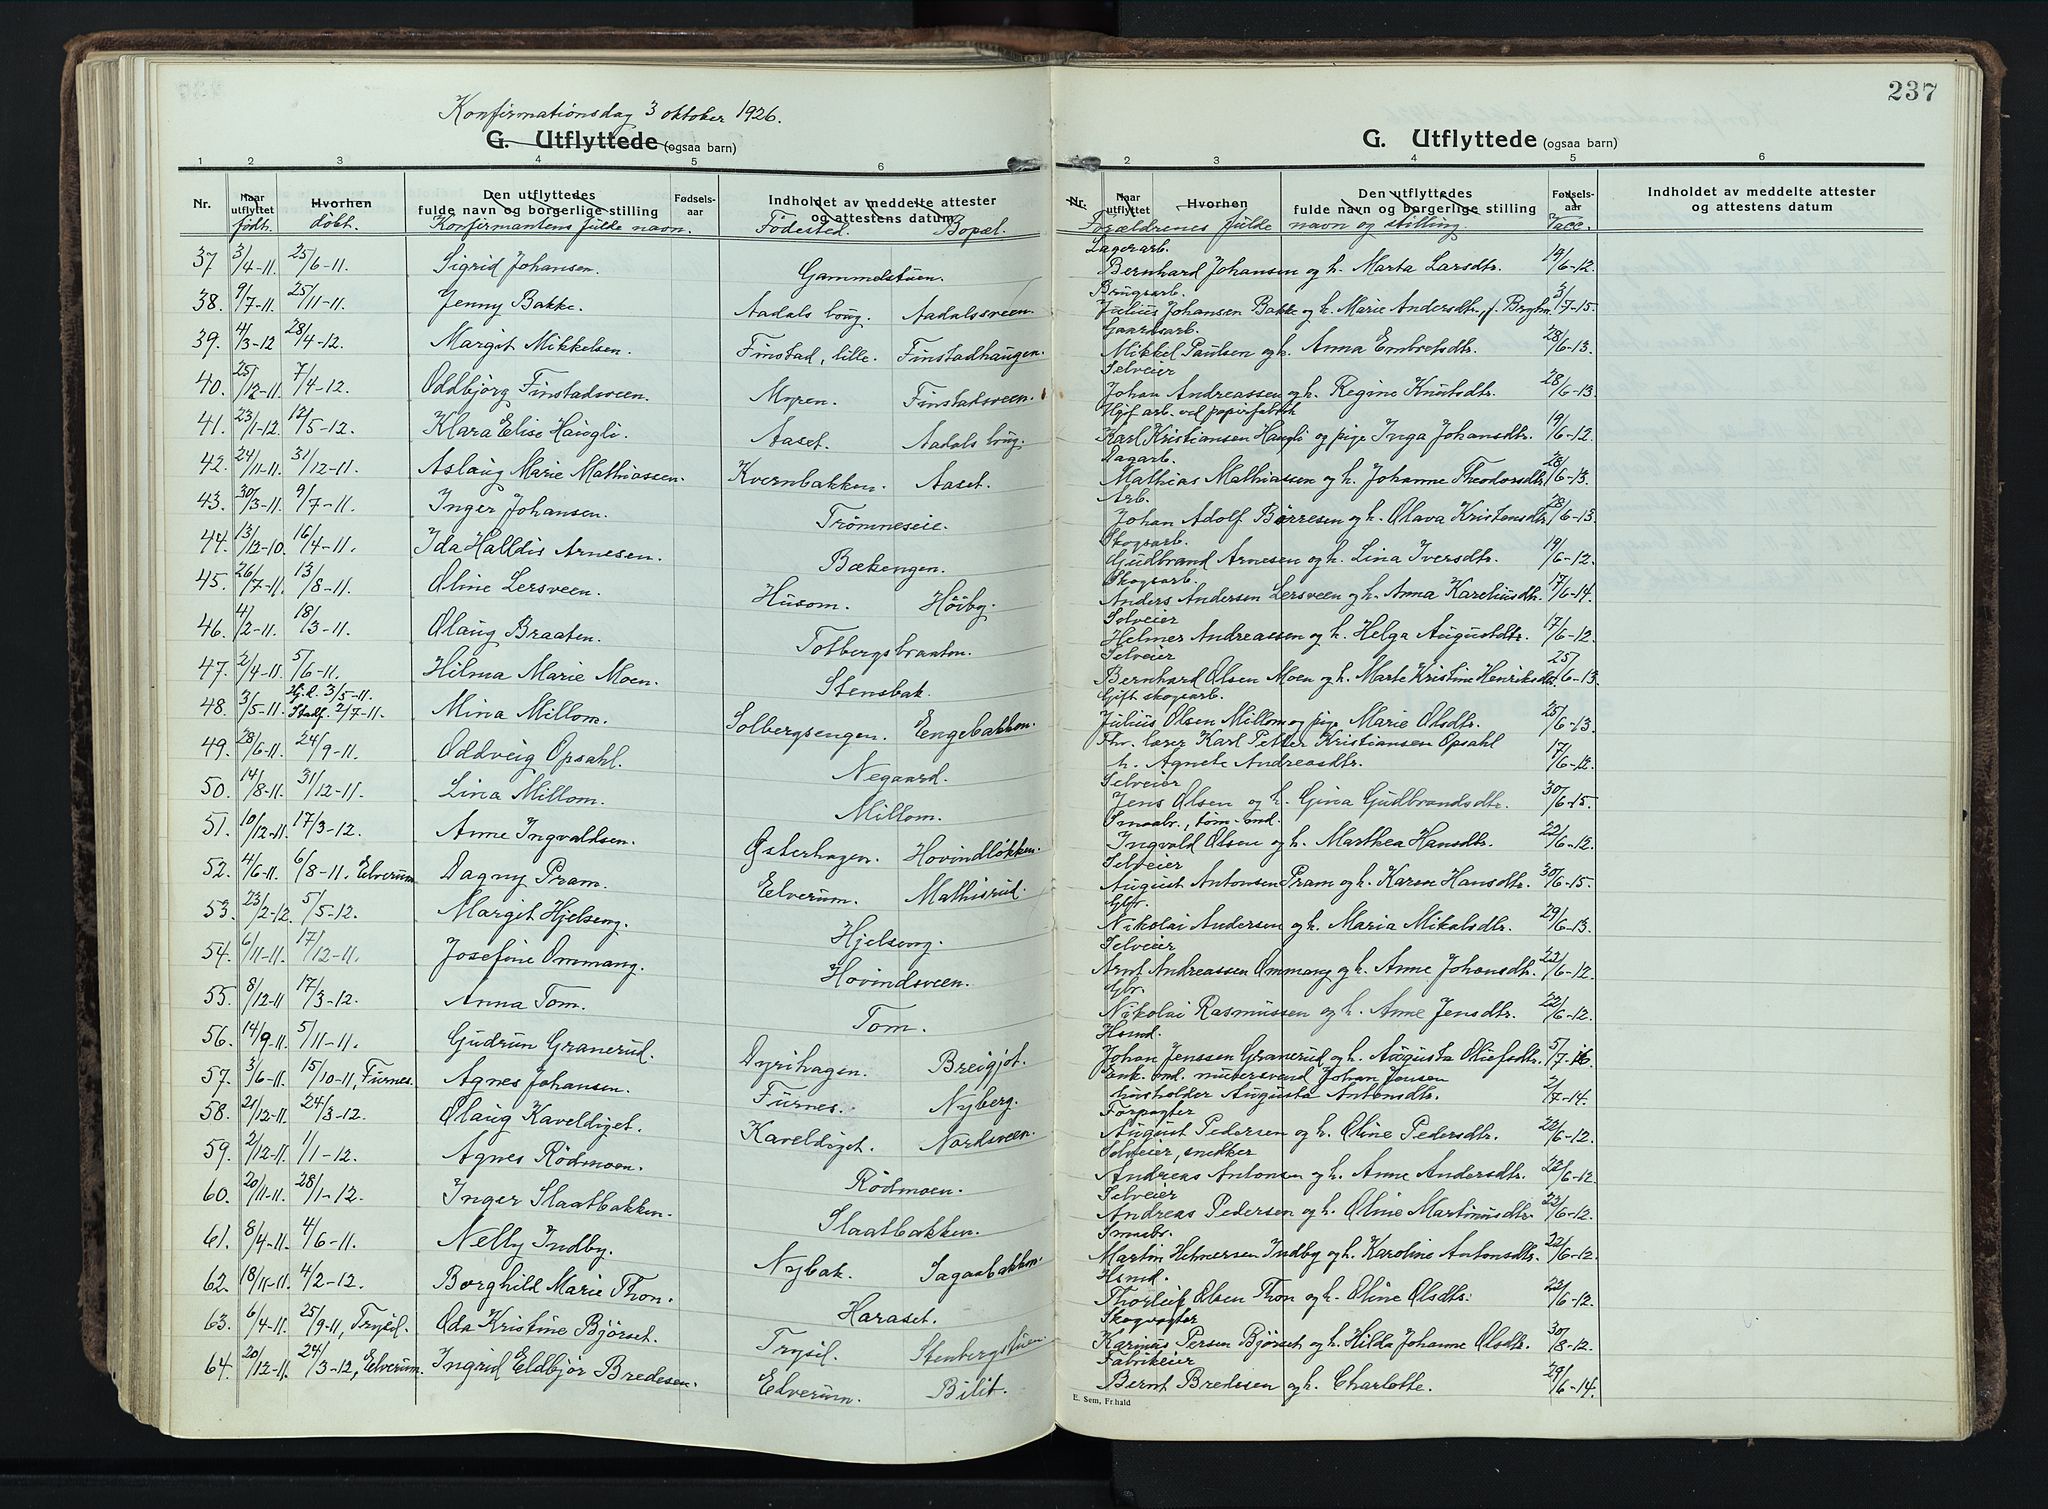 Konfirmationsdag 3 oktober 1926.
G. Utflyttede (ogsaa barn)
1 2 3 4 5 6
Nr. Naar utflyttet Hvorhen Den utflyttedes fulde navn og borgerlige stilling Fødsels-aar Indholdet av meddelte attester og attestens datum
født. døbt. Konfirmantens fulde navn. Födested. Bopæl.
37 3/4-11. 25/6-11. Sigrid Johansen. Gammelstuen.
38. 9/7-11. 25/11-11. Jenny Bakke. Aadals brug. Aadalsveen.
39. 4/3-12 28/4-12. Margit Mikkelsen. Finstad, lille. Finstadhaugen.
40. 25/12-11. 7/4-12. Oddbjörg Finstadsveen. Myren. Finstadsveen.
41. 23/1-12. 12/5-12. Klara Elise Haugli. Aaset. Aadals brug.
42. 24/11-11. 31/12-11. Aslaug Marie Mathiassen. Kvernbakken. Aaset.
43. 30/3-11. 9/7-11. Inger Johansen. Trömneseie.
44. 13/12-10. 16/4-11. Ida Halldis Arnesen. Bækengen.
45. 26/7-11. 13/8-11. Oline Lersveen. Husom. Höiby.
46. 4/2-11. 18/3-11. Olaug Braaten. Totbergsbraaten.
47. 2/4-11. 5/6-11. Hilma Marie Moen. Stensbak.
48. 3/5-11. Hjd. 3/5-11. Stadf. 2/7-11. Mina Millom. Solbergsengen. Engebakken.
49. 28/6-11. 24/9-11. Oddveig Opsahl. Negaard.
50. 14/8-11. 31/12-11. Lina Millom. Millom.
51. 10/12-11. 17/3-12. Anne Ingvaldsen. Østerhagen. Hovindløkken.
52. 4/6-11. 6/8-11. Elverum Dagny Pram. Elverum. Mathisrud.
53. 23/2-12. 5/5-12. Margit Hjelseng. Hjelseng.
54. 6/11-11. 17/12-11. Josefine Ommang. Hovindsveen.
55. 8/12-11 17/3-12. Anna Tom. Tom.
56. 14/9-11. 5/11-11. Gudrun Granerud. Dyrihagen. Breigjot.
57. 3/6-11. 15/10-11, Furnes. Agnes Johansen. Furnes. Nyberg.
58. 21/12-11. 24/3-12. Olaug Kaveldiget. Kaveldiget. Nordsveen.
59. 2/12-11. 1/1-12. Agnes Rödmoen. Rödmoen.
60. 20/11-11. 28/1-12. Inger Slaatbakken. Slaatbakken.
61. 8/4-11. 4/6-11. Nelly Indby. Nybak. Sagaabakken.
62. 18/11-11. 4/2-12. Borghild Marie Thon. Haraset.
63. 6/4-11. 25/9-11, Trysil. Oda Kristine Bjørset. Trysil. Stenbergstuen.
64. 20/12-11. 24/3-12, Elverum. Ingrid Eldbjør Bredesen. Elverum. Bilit.
237
G. Utflyttede (ogsaa barn)
2 3 4 5 6
Nr. Naar utflyttet Hvorhen Den utflyttedes fulde navn og borgerlige stilling Fødsels-aar Indholdet av meddelte attester og attestens datum
Forældrenes fulde navn og stilling. Vacc.
Lagerarb.
Bernhard Johansen og h. Marta Larsdtr. 19/6-12.
Brugsarb.
Julius Johansen Bakke og h. Marie Andersdtr. 3/7-15.
Gaardsarb.
Mikkel Paulsen og h. Anna Embretsdtr. 28/6-13.
Selveier
Johan Andreassen og h. Regine Knutsdtr. 28/6-13
arb. ved papirfabrik
Karl Kristiansen Haugli og pige Inga Johansdtr. 19/6-12.
Dagarb.
Mathias Mathiassen og h. Johanne Theodorsdtr. 28/6-13.
Arb.
Johan Adolf Børresen og h. Olava Kristensdtr. 28/6-13.
Skogsarb.
Gudbrand Arnesen og h. Lina Iversdtr. 19/6-12.
Skogsarb.
Anders Andersen Lersveen og h. Anna Kareliusdtr. 17/6-14.
Selveier
Helmer Andreassen og h. Helga Augustdtr. 17/6-12.
Selveier
Bernhard Olsen Moen og h. Marte Kristine Henriksdtr. 25/6-13.
Gift skogsarb.
Julius Olsen Millom og pige Marie Olsdtr. 25/6-13.
Fhv. lærer Karl Petter Kristiansen Opsahl
h. Agnete Andreasdtr. 17/6-12.
Selveier
Jens Olsen og h. Gina Gudbrandsdtr. 30/6-15.
Smaabr., töm-md.
Ingvald Olsen og h. Marthea Hansdtr. 22/6-12.
Selveier
August Antonsen Pram og h. Karen Hansdtr. 30/6-15.
Gbr.
Nikolai Andersen og h. Maria Mikalsdtr. 29/6-13.
Selveier
Arnt Andreassen Ommang og h. Anne Johansdtr. 22/6-12.
Gbr.
Nikolai Rasmussen og h. Anne Jensdtr. 22/6-12.
Hsmd.
Johan Jenssen Granerud og h. Augusta Oliefsdtr. 5/7-16
Enk. md. mursvend Johan Jensen
husholder Augusta Antonsdtr. 2/7-14.
Forpagter
August Pedersen og h. Oline Pedersdtr. 22/6-12.
Selveier, snekker
Andreas Antonsen og h. Anne Andersdtr. 22/6-12.
Selveier
Andreas Pedersen og h. Oline Martinusdtr. 22/6-12.
Smaabr.
Martin Helmersen Indby og h. Karoline Antonsdtr. 22/6-12.
Hsmd.
Thorleif Olsen Thon og h. Oline Olsdtr. 22/6-12.
Skogvogter
Karinus Persen Bjørset og h. Hilda Johanne Olsdtr. 30/8-12.
Fabrikeier
Bernt Bredesen og h. Charlotte. 29/6-14.
E. Sem, Fr.hald